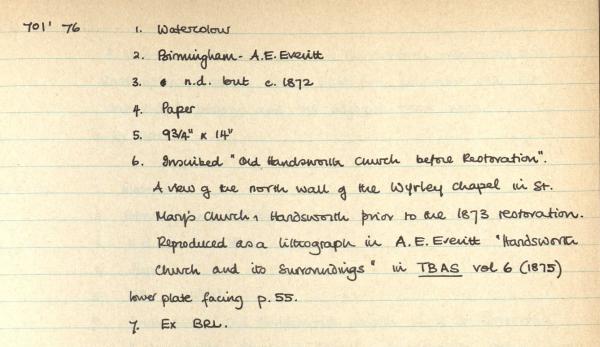 701' 76 1. Watercolour
2. Birmingham - A.E. Everitt
3. n.d. but c. 1872
4. Paper
5. 9 3/4" x 14"
6. Inscribed "Old Handsworth Church before Restoration".
A view of the north wall of the Wyrley chapel in St.
Mary's Church, Handsworth prior to the 1873 restoration.
Reproduced as a lithograph in A.E. Everitt "Handsworth
Church and its Surroundings" in TBAS vol 6 (1875)
lower plate facing p. 55.
7. Ex BRL.